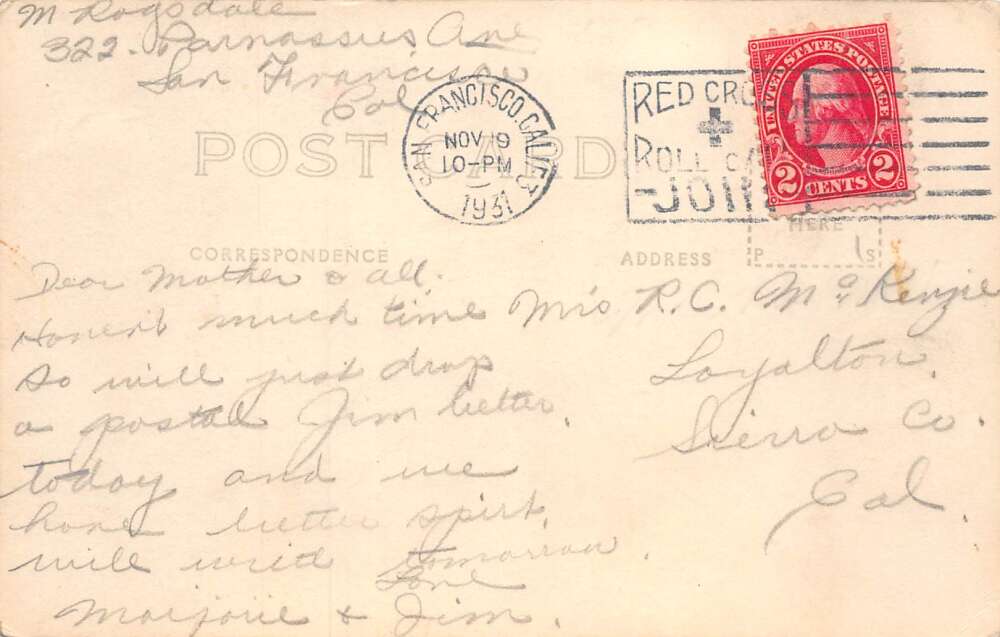 M Ragsdale
322 - Parnassus Ave
San Francisco
Cal
POST CARD
SAN FRANCISCO, CALIF. 3
NOV 19
10-PM
1931
RED CROSS
ROLL CALL
JOIN
UNITED STATES POSTAGE
2 CENTS 2
HERE
P 1 S
CORRESPONDENCE
ADDRESS
Dear Mother & all.
Haven't much time
so will just drop
a postal Jim better.
today and we
have better spirt,
will write tomorrow.
Love
Marjorie & Jim.
Mrs R.C. McKenzie
Loyalton,
Sierra Co.
Cal.